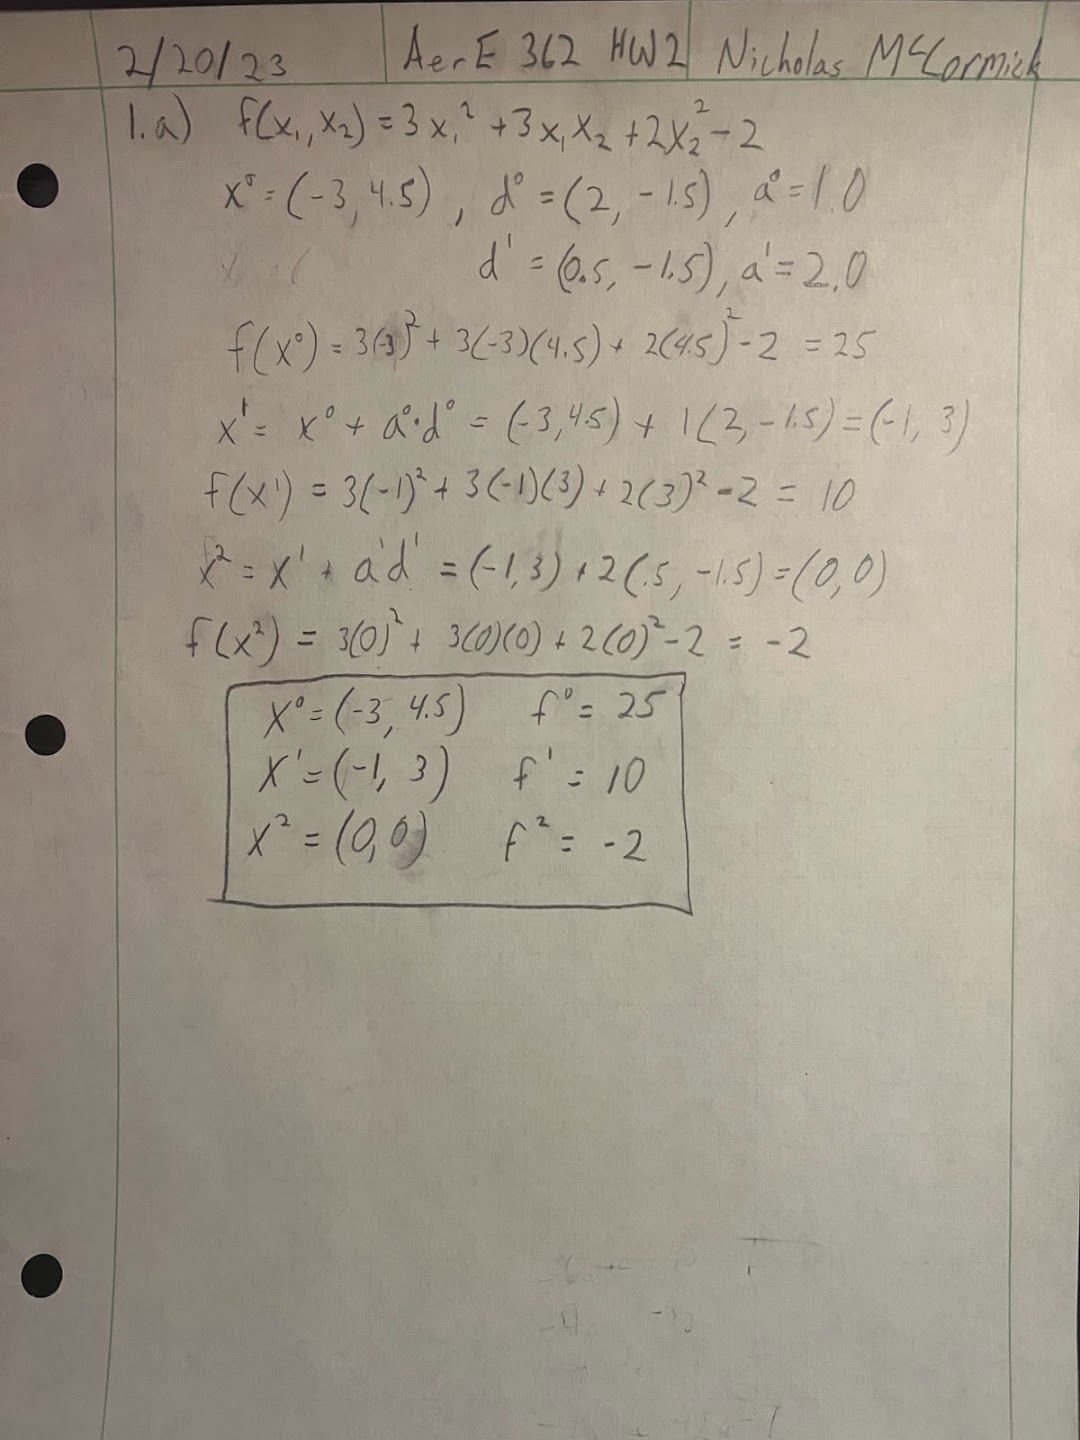 2/20/23 AerE 362 HW2 Nicholas McCormick
1.a) f(x₁, x₂) = 3x₁² + 3x₁x₂ + 2x₂² - 2
x⁰ = (-3, 4.5), d⁰ = (2, -1.5), a⁰ = 1.0
d¹ = (0.5, -1.5), a¹ = 2.0
f(x⁰) = 3(-3)² + 3(-3)(4.5) + 2(4.5)² - 2 = 25
x¹ = x⁰ + a⁰·d⁰ = (-3, 4.5) + 1(2, -1.5) = (-1, 3)
f(x¹) = 3(-1)² + 3(-1)(3) + 2(3)² - 2 = 10
x² = x¹ + a¹d¹ = (-1, 3) + 2(.5, -1.5) = (0, 0)
f(x²) = 3(0)² + 3(0)(0) + 2(0)² - 2 = -2
x⁰ = (-3, 4.5) f⁰ = 25
x¹ = (-1, 3) f¹ = 10
x² = (0, 0) f² = -2